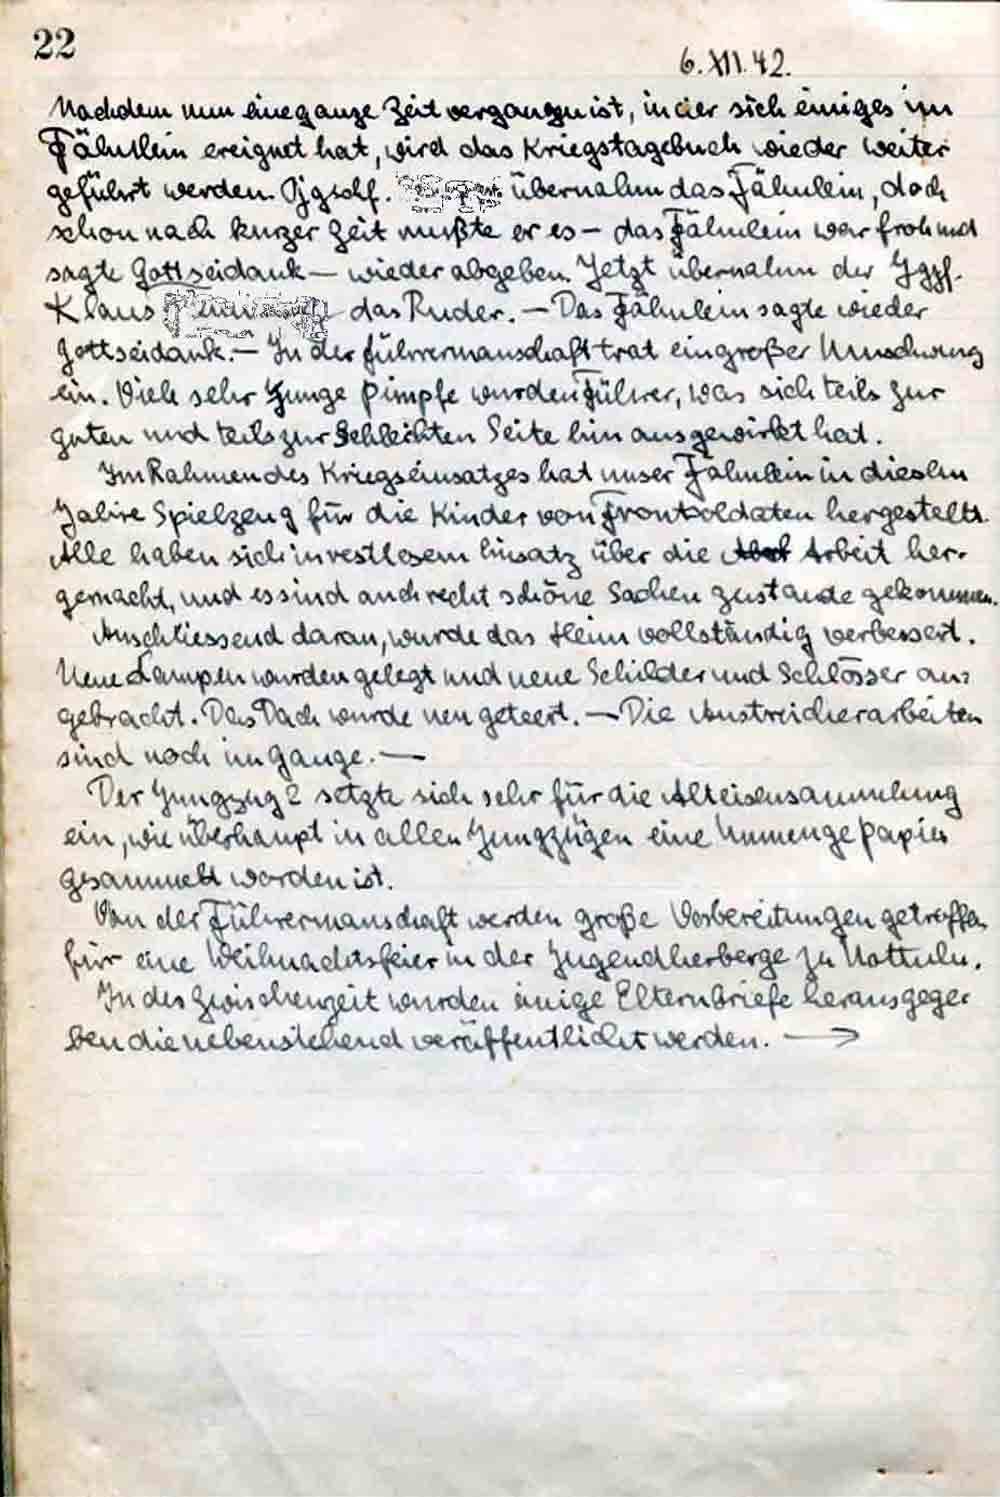 22
6.XII.42.
Nachdem nun eine ganze Zeit vergangen ist, in der sich einiges im
Fähnlein ereignet hat, wird das Kriegstagebuch wieder weiter
geführt werden. übernahm das Fähnlein, doch
schon nach kurzer Zeit mußte er es – das Fähnlein war froh und
sagte Gottseidank – wieder abgeben. Jetzt übernahm der Jgzf.
Klaus das Ruder. – Das Fähnlein sagte wieder
Gottseidank. – In der Führermannschaft trat ein großer Umschwung
ein. Viele sehr junge Pimpfe wurden Führer, was sich teils zur
guten und teils zur Schlechten Seite hin ausgewirkt hat.
Im Rahmen des Kriegseinsatzes hat unser Fähnlein in diesem
Jahre Spielzeug für die Kinder von Frontsoldaten hergestellt.
Alle haben sich in restlosem Einsatz über die Arbeit her-
gemacht, und es sind auch recht schöne Sachen zustande gekommen.
Anschliessend daran, wurde das Heim vollständig verbessert.
Neue Lampen wurden gelegt und neue Schilder und Schlösser an-
gebracht. Das Dach wurde neu geteert. – Die Anstreicherarbeiten
sind noch im Gange. –
Der Jungzug 2 setzte sich sehr für die Alteisensammlung
ein, wie überhaupt in allen Jungzügen eine Unmenge Papier
gesammelt worden ist.
Von der Führermanschaft werden große Vorbereitungen getroffen
für eine Weihnachtsfeier in der Jugendherberge zu Nottuln.
In der Zwischenzeit wurden einige Elternbriefe herausgege-
ben die nebenstehend veröffentlicht werden. →